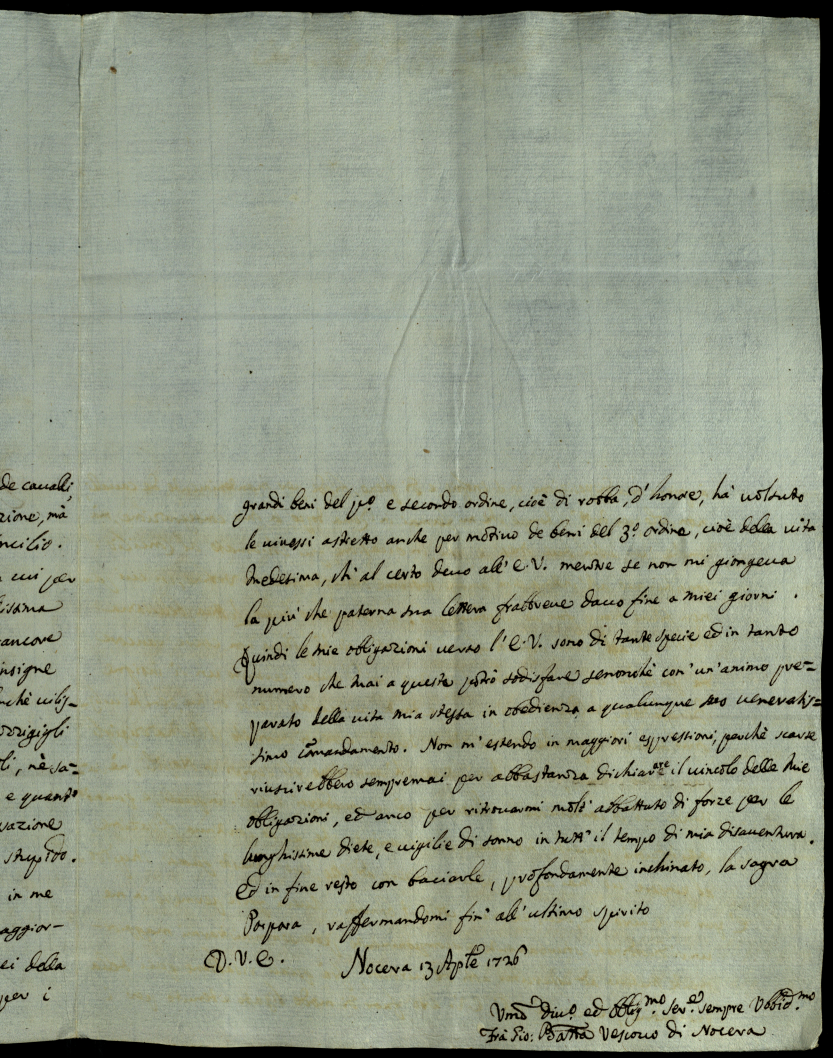 de cavalli,
zione, mà
ncilio.
a cui per
issima
ancore
insigne
nchè vilis=
ozzigigli
li, nè sa=
e quanto
vazione
stupido.
in me
aggior-
ei della
per i
grandi beni del pº. e secondo ordine, cioè di robba, d'honore, hà voluto
le vivessi astretto anche per motivo de beni del 3º. ordine, cioè della vita
medesima, ch' al certo devo all' E.V. mentre se non mi giongeva
la più che paterna sua lettera frabbreve davo fine a miei giorni.
Quindi le mie obligazioni verso l'E.V. sono di tante specie ed in tanto
numero che mai a queste potrò sodisfare senonchè con' un' animo pre=
parato della vita mia stessa in obedienza a qualunque suo veneratis=
simo comandamento. Non m'estendo in maggiori espressioni, perchè scarse
riuscirebbero sempremai per abbastanza dichiarare il vincolo delle mie
obligazioni, ed anco per ritrovarmi molt' abbattuto di forze per le
longhissime diete, e vigilie di sonno in tutt' il tempo di mia disaventura.
Ed in fine resto con baciarle, profondamente inchinato, la sagra
Porpora, raffermandomi fin' all' ultimo spirito
D.V.E. Nocera 13 Aple 1726
Umo divo. ed obligmo. serve. sempre Ubbidmo.
Frà Gio: Batta Vescovo di Nocera